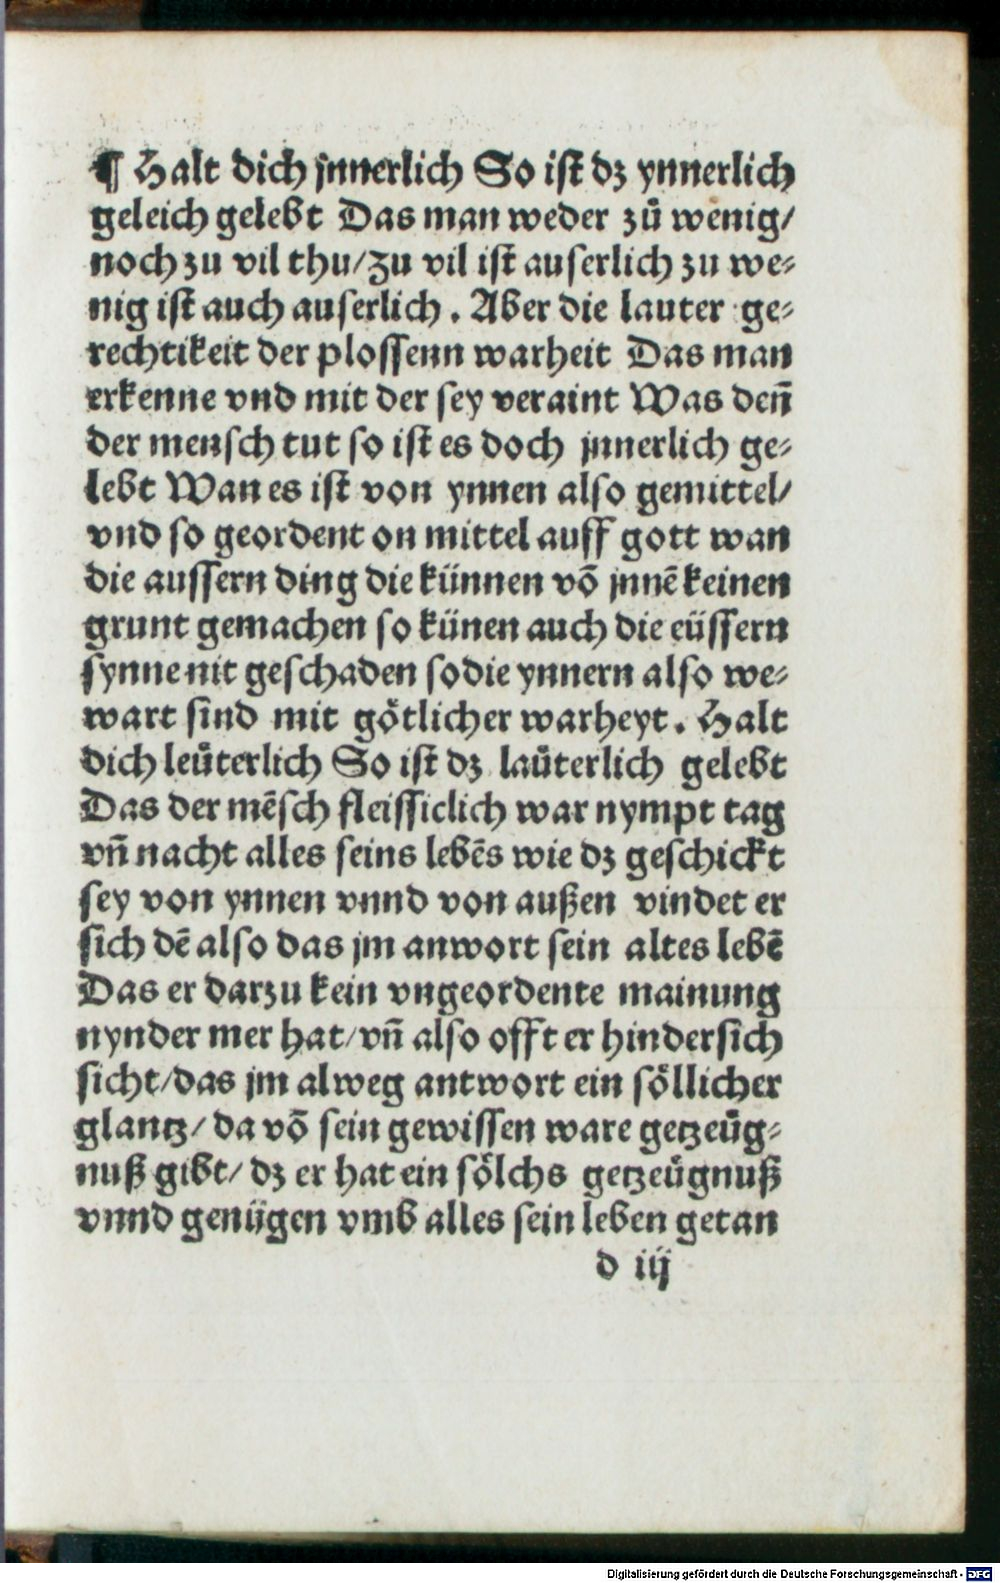 ¶ Halt dich jnnerlich So ist dz ynnerlich
geleich gelebt Das man weder zů wenig/
noch zu vil thu/zu vil ist auserlich zu we⸗
nig ist auch auserlich. Aber die lauter ge⸗
rechtikeit der plossenn warheit Das man
erkenne vnd mit der sey veraint Was deñ
der mensch tut so ist es doch jnnerlich ge⸗
lebt Wan es ist von ynnen also gemittel/
vnd so geordent on mittel auff gott wan
die aussern ding die künnen võ jnnē keinen
grunt gemachen so künen auch die eüssern
synne nit geschaden so die ynnern also we⸗
wart sind mit götlicher warheyt. Halt
dich leüterlich So ist dz laüterlich gelebt
Das der mēsch fleissiclich war nympt tag
vñ nacht alles seins lebēs wie dz geschickt
sey von ynnen vnnd von außen vindet er
sich dē also das jm anwort sein altes lebē
Das er darzu kein vngeordente mainung
nynder mer hat/vñ also offt er hindersich
sicht/das jm alweg antwort ein söllicher
glantz/da võ sein gewissen ware getzeüg⸗
nuß gibt/dz er hat ein sölchs getzeügnuß
vnnd genügen vmb alles sein leben getan
d iij
Digitalisierung gefördert durch die Deutsche Forschungsgemeinschaft - DFG